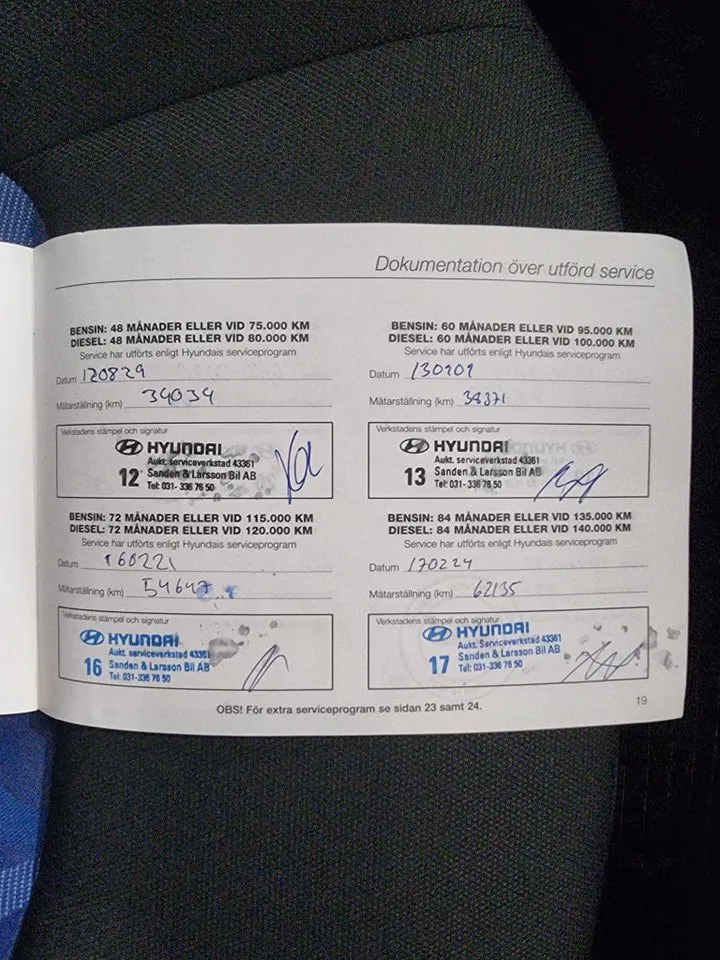 Dokumentation över utförd service
BENSIN: 48 MÅNADER ELLER VID 75.000 KM
DIESEL: 48 MÅNADER ELLER VID 80.000 KM
Service har utförts enligt Hyundais serviceprogram
Datum 120829
Mätarställning (km) 34034
Verkstadens stämpel och signatur
HYUNDAI
Aukt. serviceverkstad 43361
12 Sanden & Larsson Bil AB
Tel: 031- 336 76 50
BENSIN: 60 MÅNADER ELLER VID 95.000 KM
DIESEL: 60 MÅNADER ELLER VID 100.000 KM
Service har utförts enligt Hyundais serviceprogram
Datum
Mätarställning (km) 38371
Verkstadens stämpel och signatur
HYUNDAI
Aukt. serviceverkstad 43361
13 Sanden & Larsson Bil AB
Tel: 031- 336 76 50
BENSIN: 72 MÅNADER ELLER VID 115.000 KM
DIESEL: 72 MÅNADER ELLER VID 120.000 KM
Service har utförts enligt Hyundais serviceprogram
Datum 160221
Mätarställning (km) 54647
Verkstadens stämpel och signatur
HYUNDAI
Aukt. serviceverkstad 43361
16 Sanden & Larsson Bil AB
Tel: 031-336 76 50
BENSIN: 84 MÅNADER ELLER VID 135.000 KM
DIESEL: 84 MÅNADER ELLER VID 140.000 KM
Service har utförts enligt Hyundais serviceprogram
Datum 170224
Mätarställning (km) 62135
Verkstadens stämpel och signatur
HYUNDAI
Aukt. Serviceverkstad 43361
17 Sanden & Larsson Bil AB
Tel: 031-336 76 50
OBS! För extra serviceprogram se sidan 23 samt 24.
19